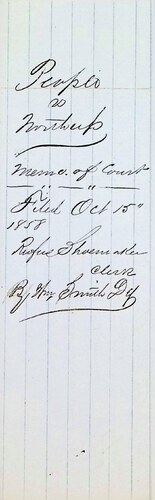 People
vs
Northup
Memo. of Court
" "
Filed Oct 15"
1858
Rufus Shoemaker
Clerk
By Wm Smith Dy